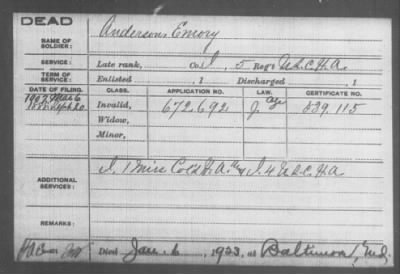 DEAD
NAME OF SOLDIER: Anderson, Emory
SERVICE: Late rank, Co. I, 5 Reg't U.S.C.H.A.
TERM OF SERVICE: Enlisted , 1 Discharged , 1
DATE OF FILING. CLASS. APPLICATION NO. LAW. CERTIFICATE NO.
1907 Mar 6
Invalid, 672.692 J. Age 839.115
Widow,
Minor,
ADDITIONAL SERVICES: I. 1 Miss Col'd H. Art. I. 4 U.S.C.H.A
REMARKS:
Died Jan. 6, 1923, at Baltimore, Md.